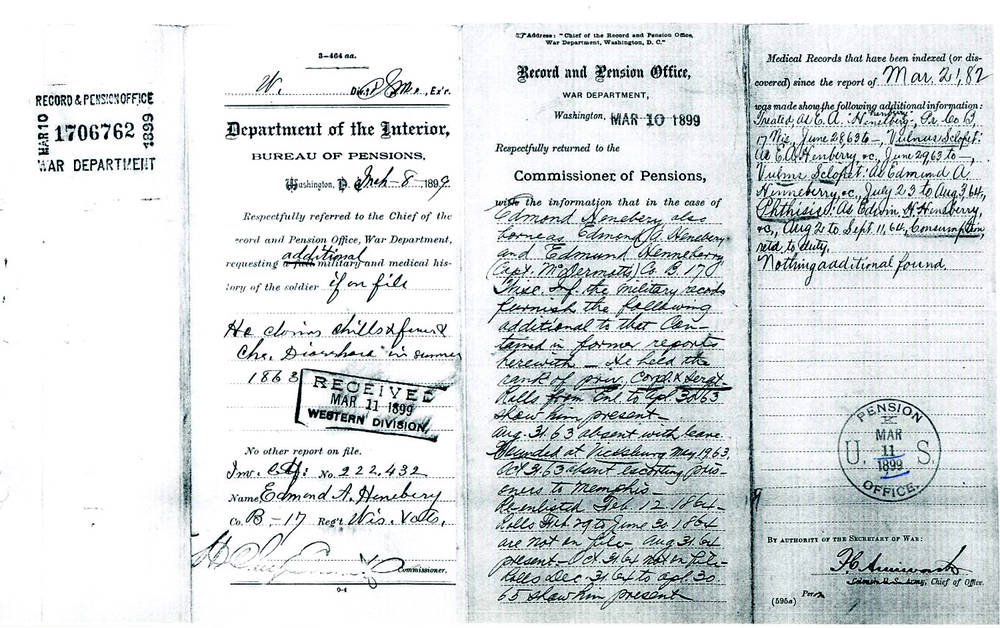 RECORD & PENSION OFFICE
MAR 10
1706762
1899
WAR DEPARTMENT
3-464 aa.
W. Div., Ex'r.
Department of the Interior,
BUREAU OF PENSIONS,
Washington, D. Mch 8 1899.
Respectfully referred to the Chief of the
ecord and Pension Office, War Department,
additional
requesting a full military and medical his-
tory of the soldier if on file
He claims chills & fever &
Chr. Diarrhoea in summer
1863
RECEIVED
MAR 11 1899
WESTERN DIVISION.
No other report on file.
Inv. No. 222,432
Name Edmond A. Henebery
Co. B-17 Reg't Wis. Vols.
Commissioner.
Address: "Chief of the Record and Pension Office,
War Department, Washington, D. C."
Record and Pension Office,
WAR DEPARTMENT,
Washington, MAR 10 1899
Respectfully returned to the
Commissioner of Pensions,
with the information that in the case of
Edmond Henebery also
borne as Edmond A. Henebery
and Edmund Henneberry
(Capt. McDermotts) Co. B. 17
Inf. the military records
furnish the following
additional to that Con-
tained in former reports
herewith - He held the
rank of priv, Corpl. & Sergt.
Rolls from Enl. to Apl. 30 63
show him present -
Aug. 31. 63 absent with leave
Wounded at Vicksburg May 19.63.
Oct 31. 63 absent escorting pris-
oners to Memphis -
Reenlisted Feb. 12 1864 -
Rolls Feb 29 to June 30 1864
are not on file - Aug 31. 64
present - Oct. 31. 64 not on file -
Rolls Dec. 31 64 to Apl. 30
65 show him present
Medical Records that have been indexed (or dis-
covered) since the report of Mar. 21, 82
was made show the following additional information:
Treated, as E. A. Henelberg, Pr. Co. B,
17 Wis, June 28 63 to -, Vulnus Sclopet:
As E. A. Henberry, &c., June 29 63 to -,
Vulnus Sclopet: As Edmund A.
Henneberry, &c., July 23 to Aug 3, 64,
Phthisis: As Edwin H. Hensberry,
&c., Aug 2 to Sept. 11, 64, Consumption,
retd to duty.
Nothing additional found.
PENSION
MAR
11
U. S.
1899
OFFICE.
BY AUTHORITY OF THE SECRETARY OF WAR:
F. C. Ainsworth
Chief of Office.
(595a)
Per
9-4